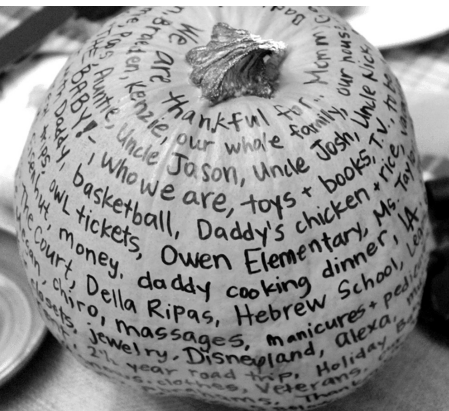 We are thankful for... Mommy
Braeden, Kenzie, our whole family, our house
Auntie, Uncle Jason, Uncle Josh, Uncle Nick
BABY! - who we are, toys + books, T.V.
Daddy, basketball, Daddy's chicken + rice,
tips, owl tickets, Owen Elementary, Ms. Taylor
money, daddy cooking dinner, LA
The Court, Della Ripas, Hebrew School,
chiro, massages, manicures +
jewelry, Disneyland, Alexa,
2 1/2 year road trip, Holiday
clothes, Veterans,